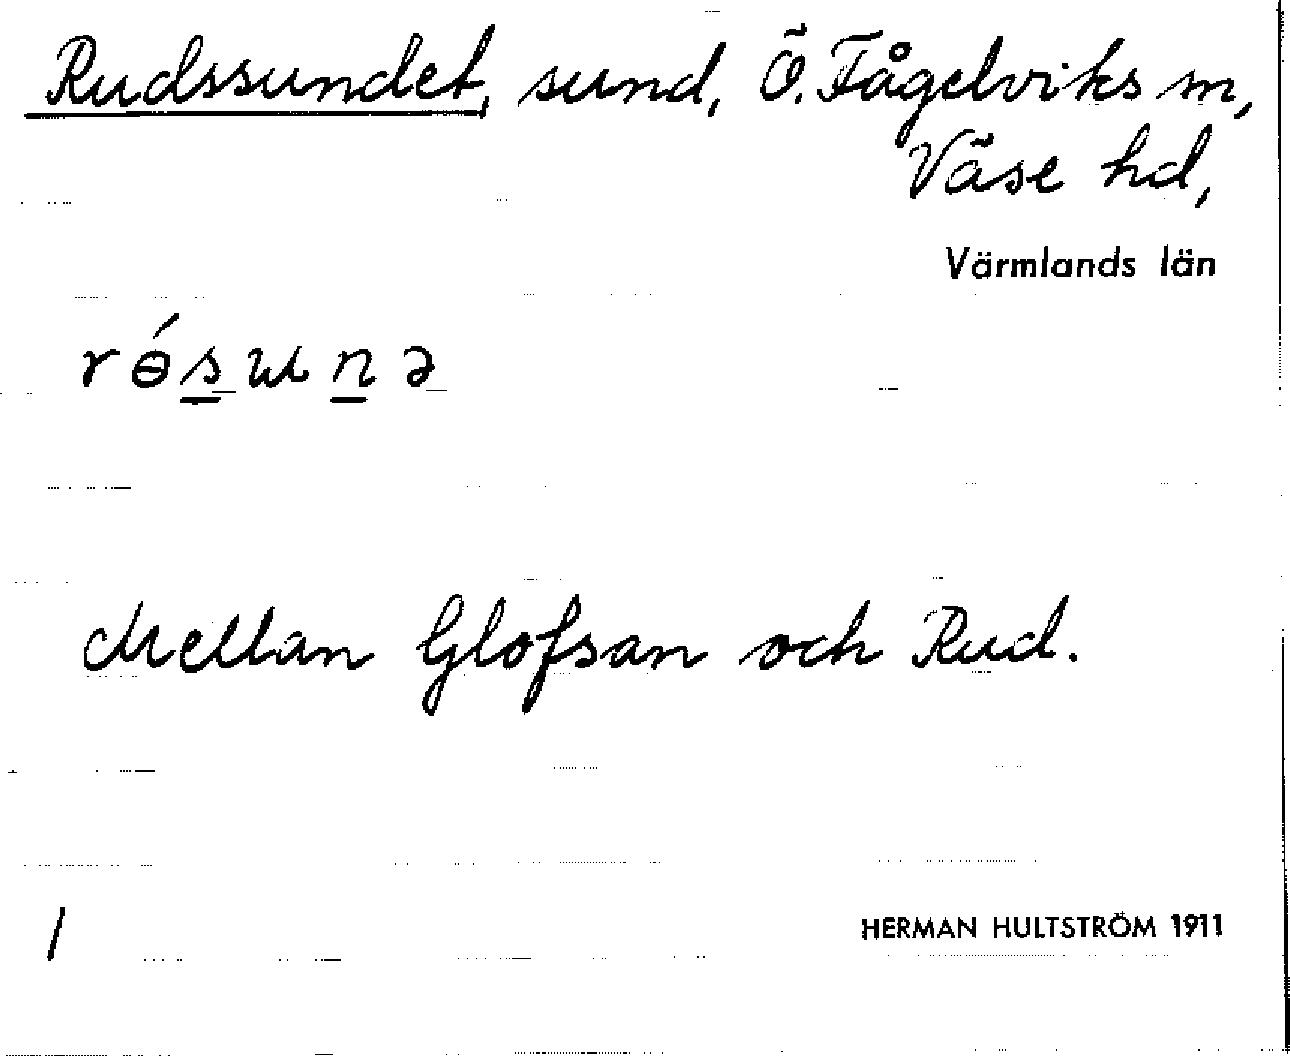 Rudssundet, sund, Ö. Fågelviks sn,
Väse hd,
Värmlands län
rɵ́s̲un̲ə
Mellan Glofsan och Rud.
/
HERMAN HULTSTRÖM 1911